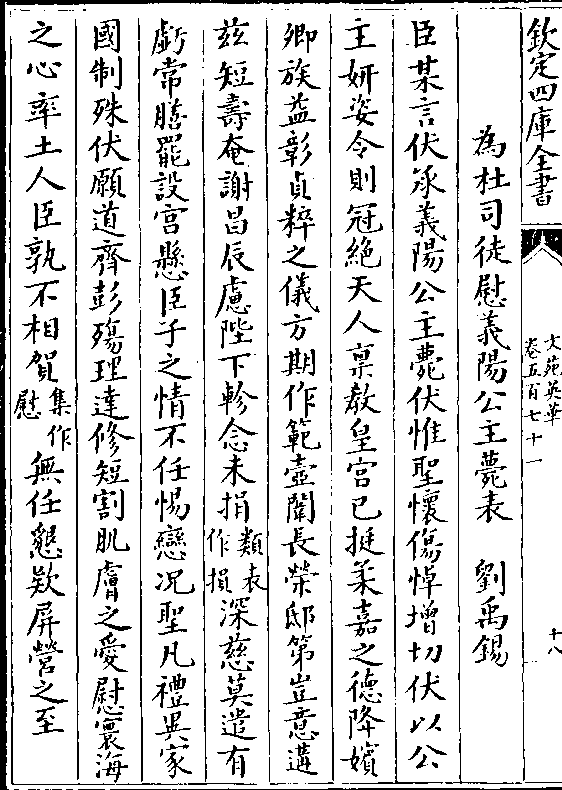 欽定四庫全書
文苑英華
卷五百七十一
十八
為杜司徒慰義陽公主薨表 劉禹錫
臣某言伏承義陽公主薨伏惟聖懷傷悼增切伏以公
主妍姿令則冠絶天人稟教皇宫已挺柔嘉之德降嬪
卿族益彰貞粹之儀方期作範壼闈長榮邸第豈意遘
兹短壽奄謝昌辰慮陛下軫念未捐類表作損深慈莫遣有
虧常膳罷設宫懸臣子之情不任惕戀况聖凡禮異家
國制殊伏願道齊彭殤理達修短割肌膚之愛慰寰海
之心率土人臣孰不相賀集作慰無任懇欵屏營之至